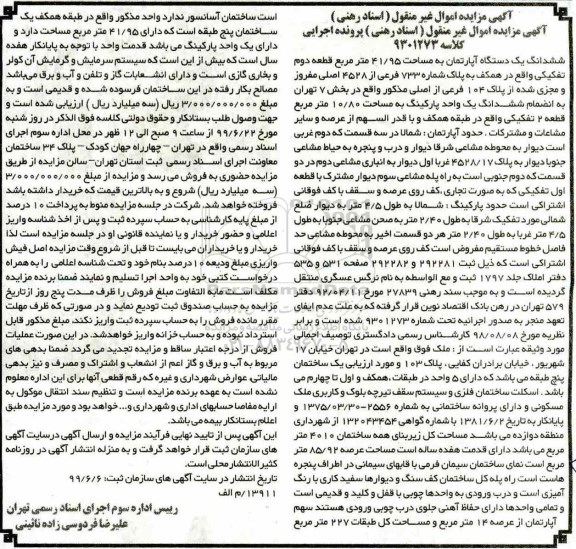 آگهی مزایده اموال غیر منقول ( اسناد رهنی )
آگهی مزایده اموال غیر منقول ( اسناد رهنی ) پرونده اجرایی
کلاسه ۹۳۰۱۲۷۳
ششدانگ یک دستگاه آپارتمان به مساحت ۴۱/۹۵ متر مربع قطعه دوم
تفکیکی واقع در همکف به پلاک شماره ۷۳۳ فرعی از ۴۵۲۸ اصلی مفروز
و مجزی شده از پلاک ۱۰۴ فرعی از اصلی مذکور واقع در بخش ۷ تهران
به انضمام ششدانگ یک واحد پارکینگ به مساحت ۱۰/۸۰ متر مربع
قطعه ۲ تفکیکی واقع در طبقه همکف و با قدر السهم از عرصه و سایر
مشاعات و مشترکات . حدود آپارتمان : شمالا در سه قسمت که دوم غربی
است دیوار به محوطه مشاعی شرقا دیوار و درب و پنجره به حیاط مشاعی
جنوبا دیوار به پلاک ۴۵۲۸/۱۷ غربا اول دیوار به انباری مشاعی دوم در دو
قسمت که دوم جنوبی است به راه پله مشاعی سوم دیوار مشترک با قطعه
اول تفکیکی که به صورت تجاری ،کف روی عرصه و سقف با کف فوقانی
اشتراکی است حدود پارکینگ : شمالا به طول ۴/۵ متر به دیوار ضلع
شمالی مورد تفکیک شرقا به طول ۲/۴۰ متر به صحن مشاعی جنوبا به طول
۴/۵ متر غربا به طول ۲/۴۰ متر هر دو قسمت اخیر به محوطه مشاعی حد
فاصل خطوط مستقیم مفروض است کف روی عرصه و سقف با کف فوقانی
اشتراکی است که ذیل ثبت ۲۹۲۲۸۱ و ۲۹۲۲۸۲ صفحه ۵۳۱ و ۵۳۵
دفتر املاک جلد ۱۷۹۷ ثبت و مع الواسطه به نام نرگس عسگری منتقل
گردیده است و به موجب سند رهنی ۲۷۸۳۹ مورخ ۹۲/۰۴/۰۱ دفتر
۵۷۹ تهران در رهن بانک اقتصاد نوین قرار گرفته که به علت عدم ایفای
تعهد منجر به صدور اجرائیه تحت شماره ۹۳۰۱۲۷۳ شده است و برابر
نظریه مورخ ۹۸/۰۸/۰۸ کارشناس رسمی دادگستری توصیف اجمالی
مورد وثیقه عبارت است از : ملک فوق واقع است در تهران خیابان ۱۷
شهریور ، خیابان برادران کفایی ، پلاک ۱۰۳ و مورد ارزیابی یک ساختمان
پنج طبقه می باشد که دارای ۵ واحد در طبقات ،همکف و اول تا چهارم می
باشد . اسکلت ساختمان فلزی و سیستم سقف تیرچه بلوک و کاربری ملک
مسکونی و دارای پروانه ساختمانی به شماره ۲۵۵۶-۱۳۷۵/۰۳/۳۰ و
پایانکار به تاریخ ۱۳۸۱/۶/۲ با شماره گواهی ۱۳۲۰۴۳۴۵۴ از شهرداری
منطقه دوازده می باشد مساحت کل زیربنای همه ساختمان ۴۰۱۰ متر
مربع می باشد دارای قدمت هفده ساله است مساحت عرصه ۸۵/۹۲ متر
مربع است نمای ساختمان سیمان فرمی با قابهای سیمانی در اطراف پنجره
هاست است راه پله کل ساختمان کف سنگ و دیوارها سفید کاری با رنگ
آمیزی است و درب ورودی به واحدها چوبی با قفل و کلید و قدیمی است
و تمامی واحدها دارای حفاظ آهنی جلوی درب چوبی ورودی هستند سهم
آپارتمان از عرصه ۱۴ متر مربع و مساحت کل طبقات ۲۲۷ متر مربع
است ساختمان آسانسور ندارد واحد مذکور واقع در طبقه همکف یک
ساختمان پنج طبقه است که دارای ۴۱/۹۵ متر مربع مساحت دارد و
دارای یک واحد پارکینگ می باشد قدمت واحد با توجه به پایانکار هفده
سال است که بیش از این است که سیستم سرمایش و گرمایش آن کولر
و بخاری گازی است و دارای انشعابات گاز و تلفن و آب و برق می‌باشد
مصالح بکار رفته در این ساختمان فرسوده شده و قدیمی است و به
مبلغ ۳/۰۰۰/۰۰۰/۰۰۰ ریال (سه میلیارد ریال ) ارزیابی شده است و
جهت وصول طلب بستانکار و حقوق دولتی کلاسه فوق الذکر در روز شنبه
مورخ ۹۹/۶/۲۲ از ساعت ۹ صبح الی ۱۲ ظهر در محل اداره سوم اجرای
اسناد رسمی واقع در تهران – چهارراه جهان کودک – پلاک ۳۴ ساختمان
معاونت اجرای اسناد رسمی ثبت استان تهران– سالن مزایده از طریق
مزایده حضوری به فروش می رسد و مزایده از مبلغ ۳/۰۰۰/۰۰۰/۰۰۰
(سه میلیارد ریال) شروع و به بالاترین قیمت که خریدار داشته باشد
فروخته خواهد شد. شرکت در جلسه مزایده منوط به پرداخت ۱۰ درصد
از مبلغ پایه کارشناسی به حساب سپرده ثبت و پس از اخذ شناسه واریز
اعلامی و حضور خریدار و یا نماینده قانونی او در جلسه مزایده است لذا
خریدار و یا خریداران می بایست تا قبل از شروع وقت مزایده اصل فیش
واریزی مبلغ ودیعه ۱۰ درصد بنام خود و تحت شناسه اعلامی را به همراه
درخواست کتبی خود به واحد اجرا تسلیم و نمایند ضمنا برنده مزایده
مکلف است مابه التفاوت مبلغ فروش را ظرف مدت پنج روز ازتاریخ
مزایده به حساب صندوق ثبت تودیع نماید و در صورتی که ظرف مهلت
مقرر مانده فروش را به حساب سپرده ثبت واریز نکند، مبلغ مذکور قابل
استرداد نبوده و به حساب خزانه واریز خواهدشد. در این صورت عملیات
فروش از درجه اعتبار ساقط و مزایده تجدید می گردد ضمنا بدهی های
مربوط به آب و برق و گاز اعم از انشعاب و اشتراک و مصرف و نیز بدهی
مالیاتی، عوارض شهرداری و غیره که رقم قطعی آنها برای این اداره معلوم
نشده است به عهده برنده مزایده است و تنظیم سند انتقال موکول به
ارایه مفاصا حسابهای اداری و شهرداری و...خواهد بود و مورد مزایده طبق
اعلام بستانکار بیمه می باشد.
این آگهی پس از تایید نهایی فرآیند مزایده و ارسال آگهی درسایت آگهی
های سازمان ثبت قرار خواهد گرفت و به منزله انتشار آگهی در روزنامه
کثیر الانتشار محلی است.
تاریخ انتشار در سایت آگهی های سازمان ثبت: ۹۹/۶/۶
۱۳۹۱۱/م الف
رییس اداره سوم اجرای اسناد رسمی تهران
علیرضا فردوسی زاده نائینی